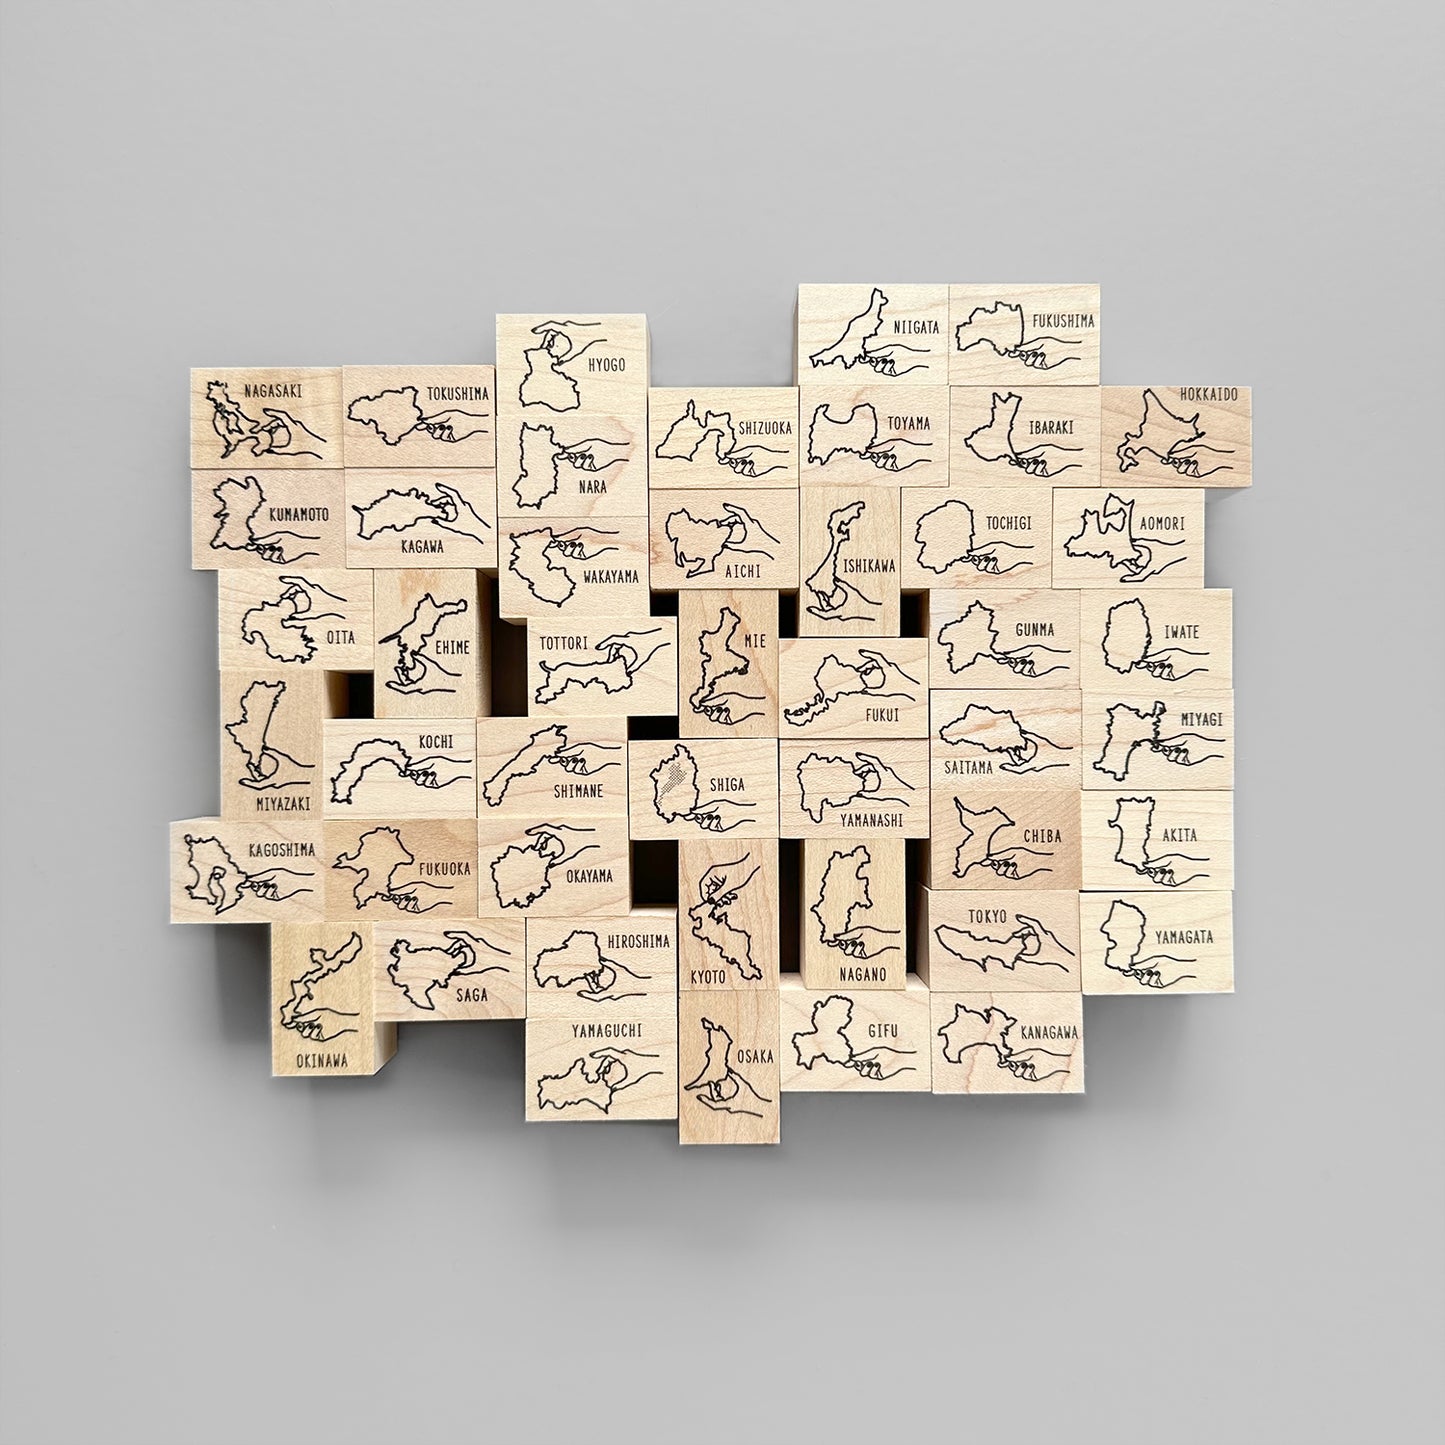 NIIGATA
FUKUSHIMA
HYOGO
NAGASAKI
TOKUSHIMA
SHIZUOKA
TOYAMA
IBARAKI
HOKKAIDO
NARA
KUMAMOTO
KAGAWA
WAKAYAMA
AICHI
ISHIKAWA
TOCHIGI
AOMORI
OITA
EHIME
TOTTORI
MIE
FUKUI
GUNMA
IWATE
MIYAZAKI
KOCHI
SHIMANE
SHIGA
YAMANASHI
SAITAMA
MIYAGI
KAGOSHIMA
FUKUOKA
OKAYAMA
CHIBA
AKITA
KYOTO
NAGANO
TOKYO
YAMAGATA
OKINAWA
SAGA
HIROSHIMA
YAMAGUCHI
OSAKA
GIFU
KANAGAWA